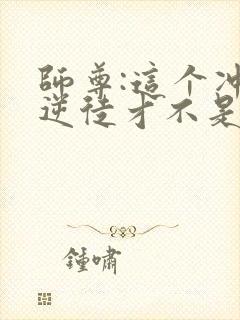 師尊:這个冲
逆徒才不是
鍾嘯